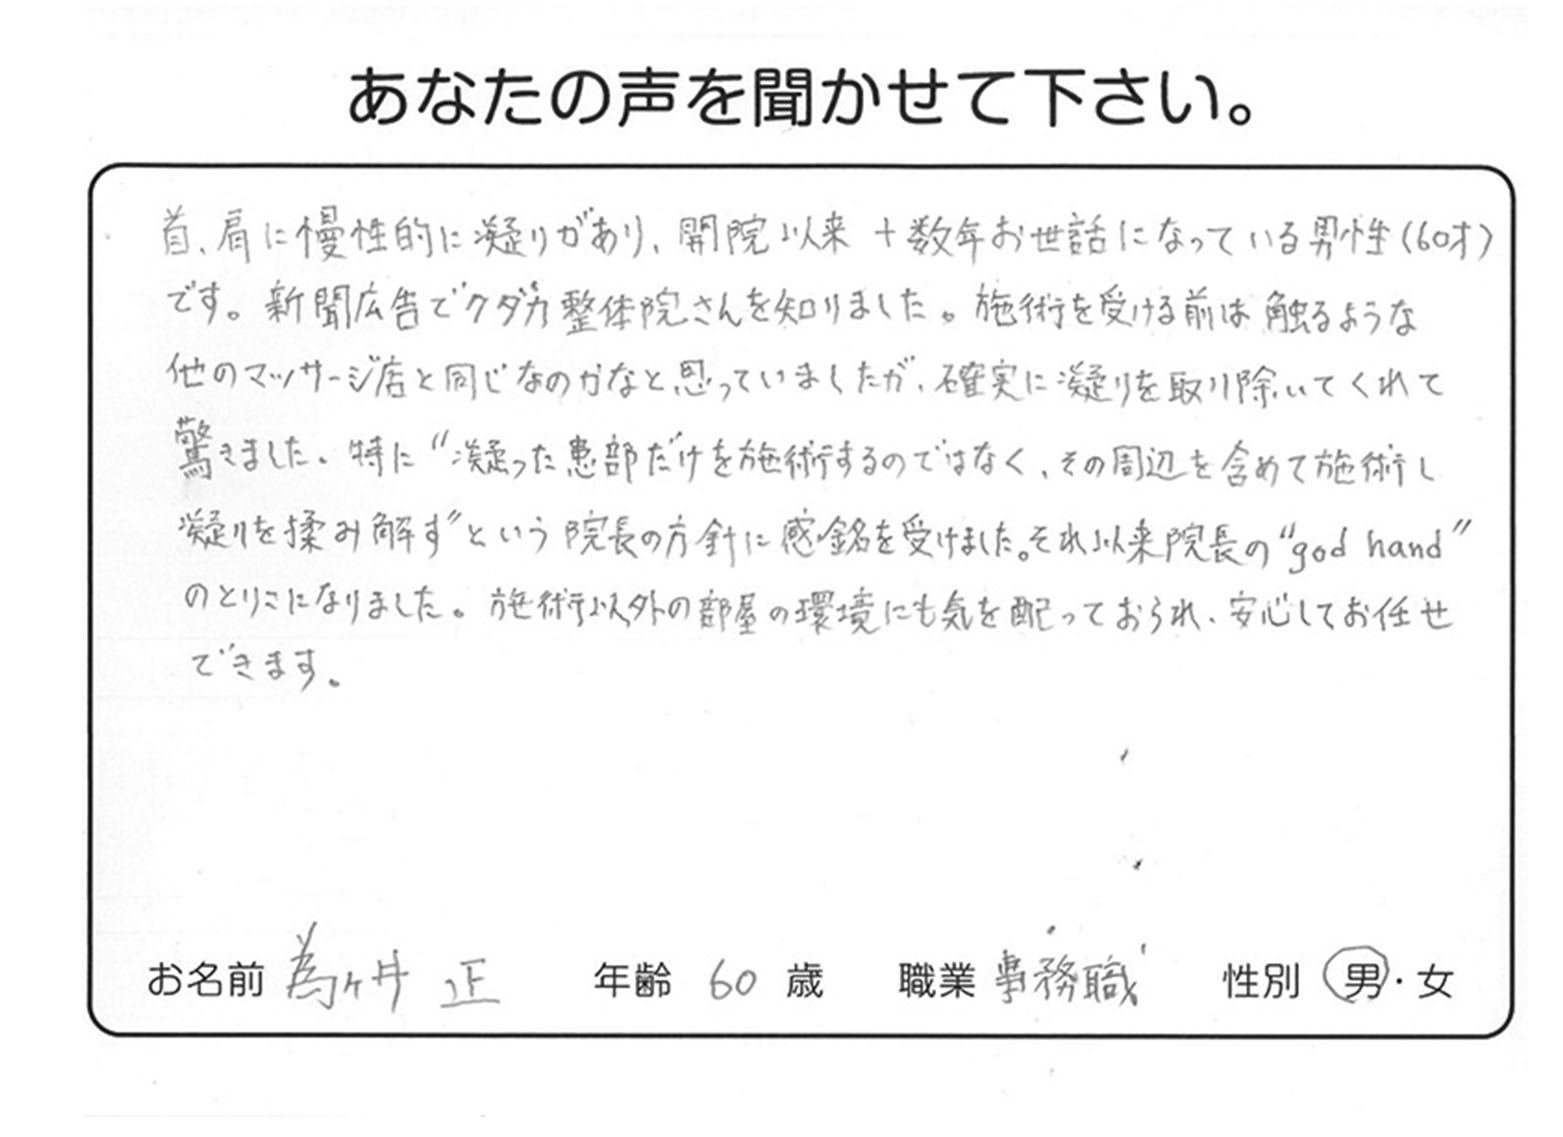 あなたの声を聞かせて下さい。
首、肩に慢性的に凝りがあり、開院以来 十数年お世話になっている男性(60才)
です。新聞広告でクダカ整体院さんを知りました。施術を受ける前は触るような
他のマッサージ店と同じなのかなと思っていましたが、確実に凝りを取り除いてくれて
驚きました。特に“凝った患部だけを施術するのではなく、その周辺を含めて施術し
凝りを揉み解す”という院長の方針に感銘を受けました。それ以来院長の“god hand”
のとりこになりました。施術以外の部屋の環境にも気を配っておられ、安心してお任せ
できます。
お名前 為ヶ井 正 年齢 60 歳 職業 事務職 性別 男・女